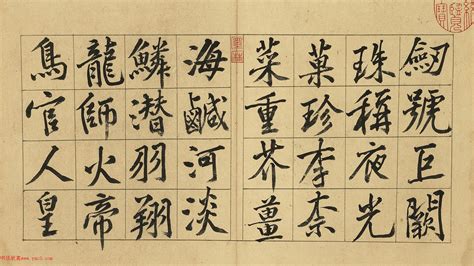 劒號巨闕
珠稱夜光
菓珍李柰
菜重芥薑
海鹹河淡
鱗潛羽翔
龍師火帝
鳥官人皇
www.yac8.com